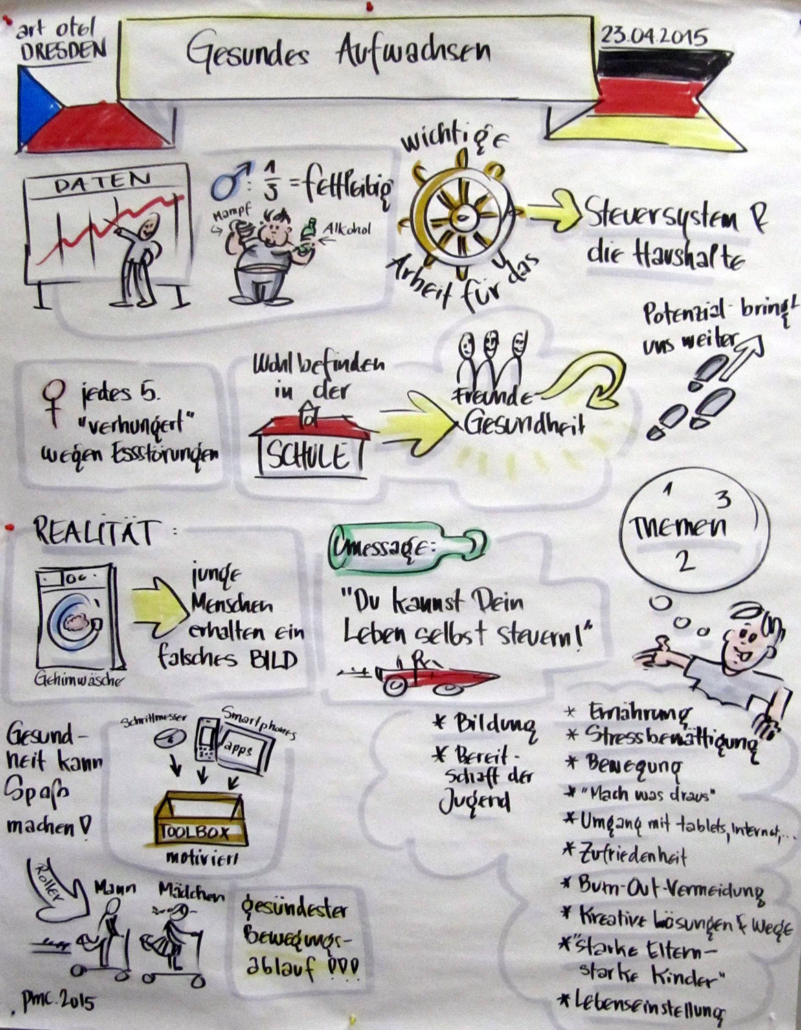 art otel
DRESDEN
Gesundes Aufwachsen
23.04.2015
DATEN
♂: 1/3 = fettleibig
Mampf
Alkohol
wichtige
Arbeit für das
Steuersystem &
die Haushalte
Potenzial bringt
uns weiter
♀ jedes 5.
"verhungert"
wegen Essstörungen
Wohlbefinden
in der
SCHULE
Freunde
Gesundheit
REALITÄT:
Gehirnwäsche
junge
Menschen
erhalten ein
falsches BILD
message:
"Du kannst Dein
Leben selbst steuern!"
1 3
THEMEN
2
Gesund-
heit kann
Spaß
machen!
Schrittmesser
Smartphones
apps
TOOLBOX
motiviert
* Bildung
* Bereit-
schaft der
Jugend
* Ernährung
* Stressbewältigung
* Bewegung
* "Mach was draus"
* Umgang mit tablets, Internet,...
* Zufriedenheit
* Burn-Out-Vermeidung
* Kreative Lösungen & Wege
* "starke Eltern-
starke Kinder"
* Lebenseinstellung
Roller
Mann
Mädchen
gesündester
Bewegungs-
ablauf !!!
pmc. 2015